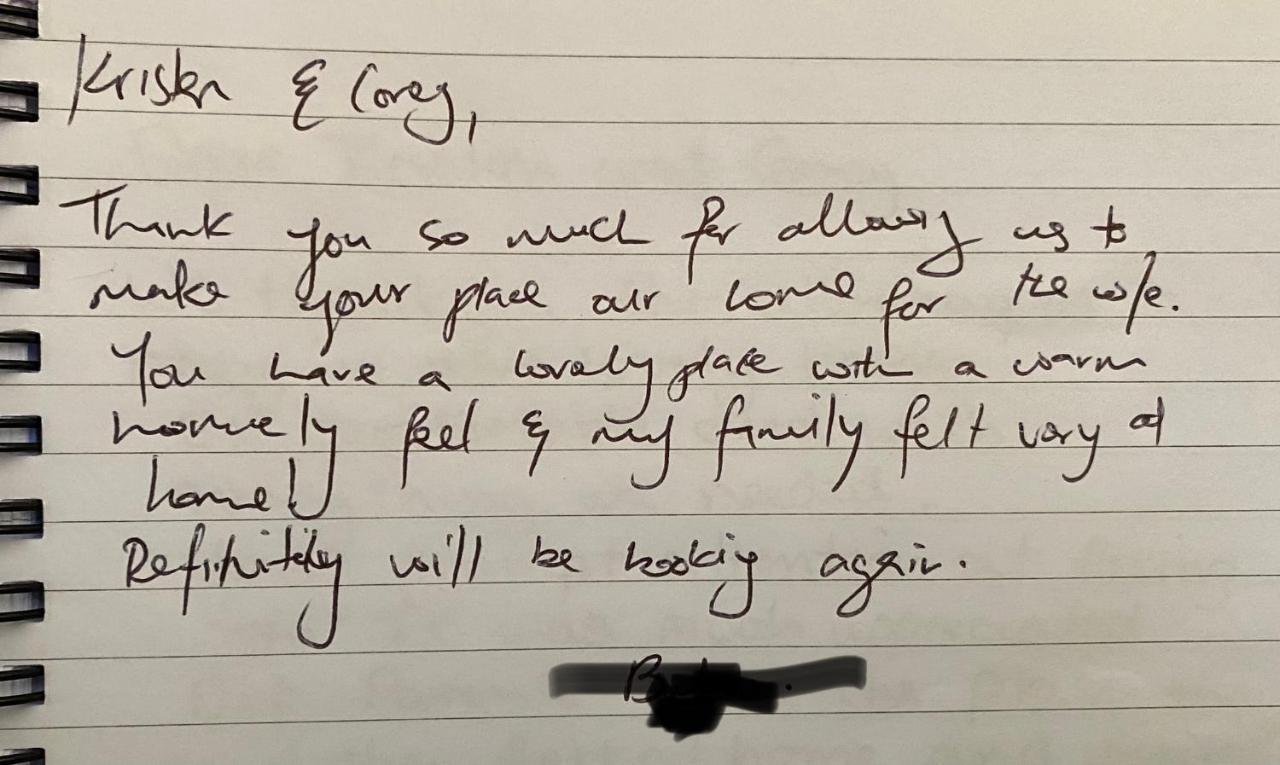 Kristen & Corey,
Thank you so much for allowing us to
make your place our home for the w/e.
You have a lovely place with a warm
homely feel & my family felt very at
home!
Definitely will be booking again.